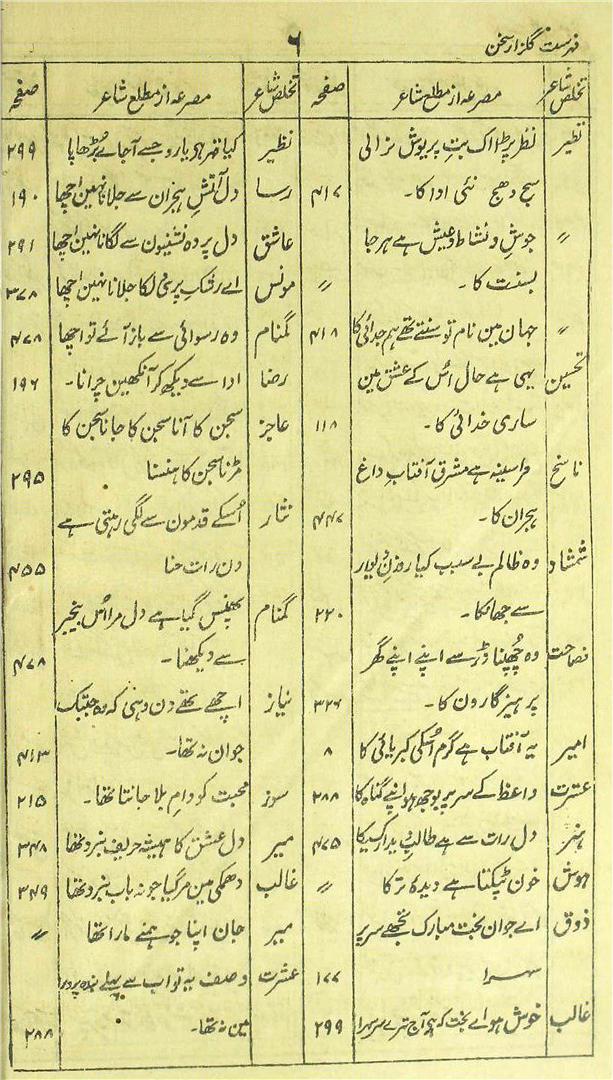 فہرست گلزار سخن
۶
تخلص شاعر مصرعہ از مطلع شاعر صفحہ
نظیر نظر پڑا اک بت پریوش نرالی
سج دھج نئی ادا کا۔ ۴۱۷
〃 جوش و نشاط و عیش ہے ہر جا
بسنت کا۔ 〃
〃 جہان مین نام تو سنتے تھے ہم جدائی کا ۴۱۸
تحسین یہی ہے حال اُس کے عشق مین
ساری خدائی کا۔ ۱۱۸
ناسخ مرا سینہ ہے مشرق آفتاب داغ
ہجران کا۔ ۴۴۷
شمشاد وہ ظالم بے سبب کیا روزن دیوار
سے جھانکا۔ ۲۲۰
فصاحت وہ چُھپنا ڈر سے اپنے اپنے گھر
پرہیزگارون کا۔ ۳۲۶
امیر یہ آفتاب ہے گرم اُسکی کبریائی کا ۸
عشرت واعظ کے سر پر بوجھ ہو اپنے گناہ کا ۲۸۸
ہنر دل رات سے ہے طالب ۴۷۵
جوش خون ٹپکتا ہے دیدۂ تر کا 〃
ذوق اے جوان بخت مبارک تجھے سر پر
سہرا ۱۷۷
غالب خوش ہو اے بخت کہ ہے آج ترے سر سہرا ۲۹۹
تخلص شاعر مصرعہ از مطلع شاعر صفحہ
نظیر کیا قہر ہی یارو جسے آجائے بُڑھاپا ۲۹۹
رسا دل آتش ہجران سے جلانا نہین اچھا ۱۹۰
عاشق دل پردہ نشینون سے لگانا نہین اچھا ۲۹۱
مونس اے رشک پری لکا جلانا نہین اچھا ۳۷۸
گمنام وہ رسوائی سے باز آئے تو اچھا ۴۷۸
رضا ادا سے دیکھ کر آنکھین چرانا۔ ۱۹۶
عاجز سجن کا آنا سجن کا جانا سجن کا
مڑنا سجن کا ہنسنا ۲۹۵
نثار اُسکے قدمون سے لگی رہتی ہے
دن رات حنا ۴۵۵
گمنام پھنس گیا ہے دل مرا اُس
سے دیکھنا۔ ۴۷۸
نیاز اچھے تھے دن وہی کہ وہ جبتک
جوان نہ تھا۔ ۴۱۳
سوز محبت کو دام بلا جانتا تھا۔ ۲۱۵
میر دل عشق کا ہمیشہ حریف نبرد تھا ۳۴۸
غالب دھمکی مین مر گیا جو نہ باب نبرد تھا ۳۴۹
میر جان اپنا جو ہمنے مارا تھا 〃
عشرت وصف یہ تو اب سے پہلے بندہ پرور
مین نہ تھا۔ ۲۸۸